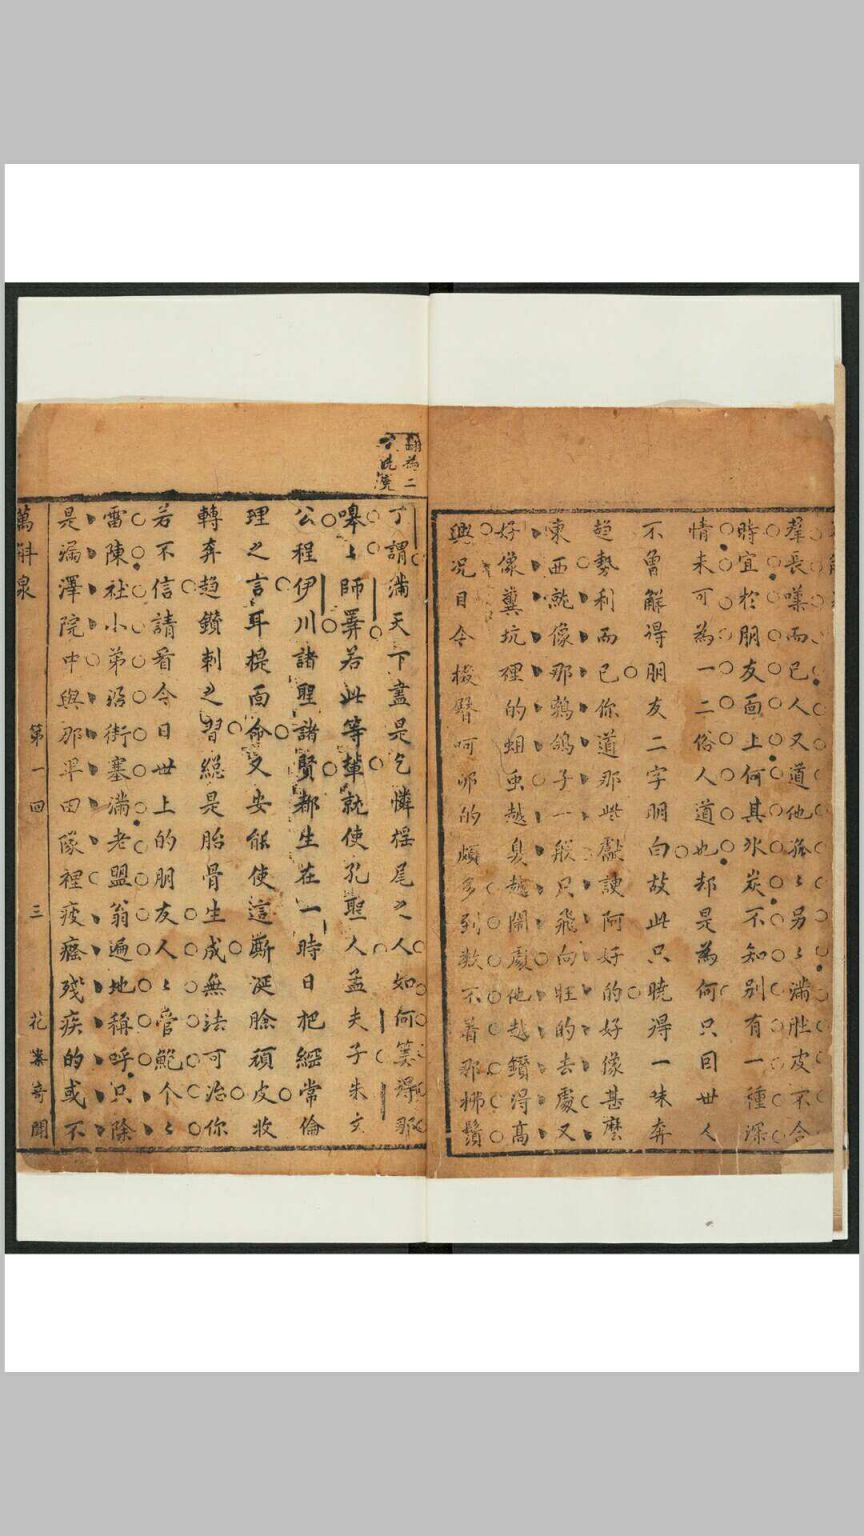 羣長嘆而已人又道他孤〻另〻滿肚皮不合
時宜於朋友面上何其氷炭不知別有一種深
情未可為一二俗人道也却是為何只因世人
不曾觧得朋友二字明白故此只曉得一味奔
趋勢利而已你道那些獻諛阿好的好像甚麽
東西就像那鵓鴿子一般只飛向旺的去處又
好像糞坑裡的蛆虫越臭越鬧處他越鑽得高
興况目今掇臀呵卵的頗多到数不着那拂鬚
丁謂滿天下盡是乞憐揺尾之人如何算得那
嘷〻師𢍰若此等輩就使孔聖人孟夫子朱文
公程伊川諸聖諸賢都生在一時日把經常倫
理之言耳提面命又安能使這厮涎臉頑皮收
轉奔趋鑽刺之習総是胎骨生成無法可治你
若不信請看今日世上的朋友人〻管鮑个〻
雷陳社小弟沿街塞滿老盟翁遍地稱呼只除
是漏澤院中與那早田隊裡疲癃殘疾的或不
萬斛泉
第一回
三